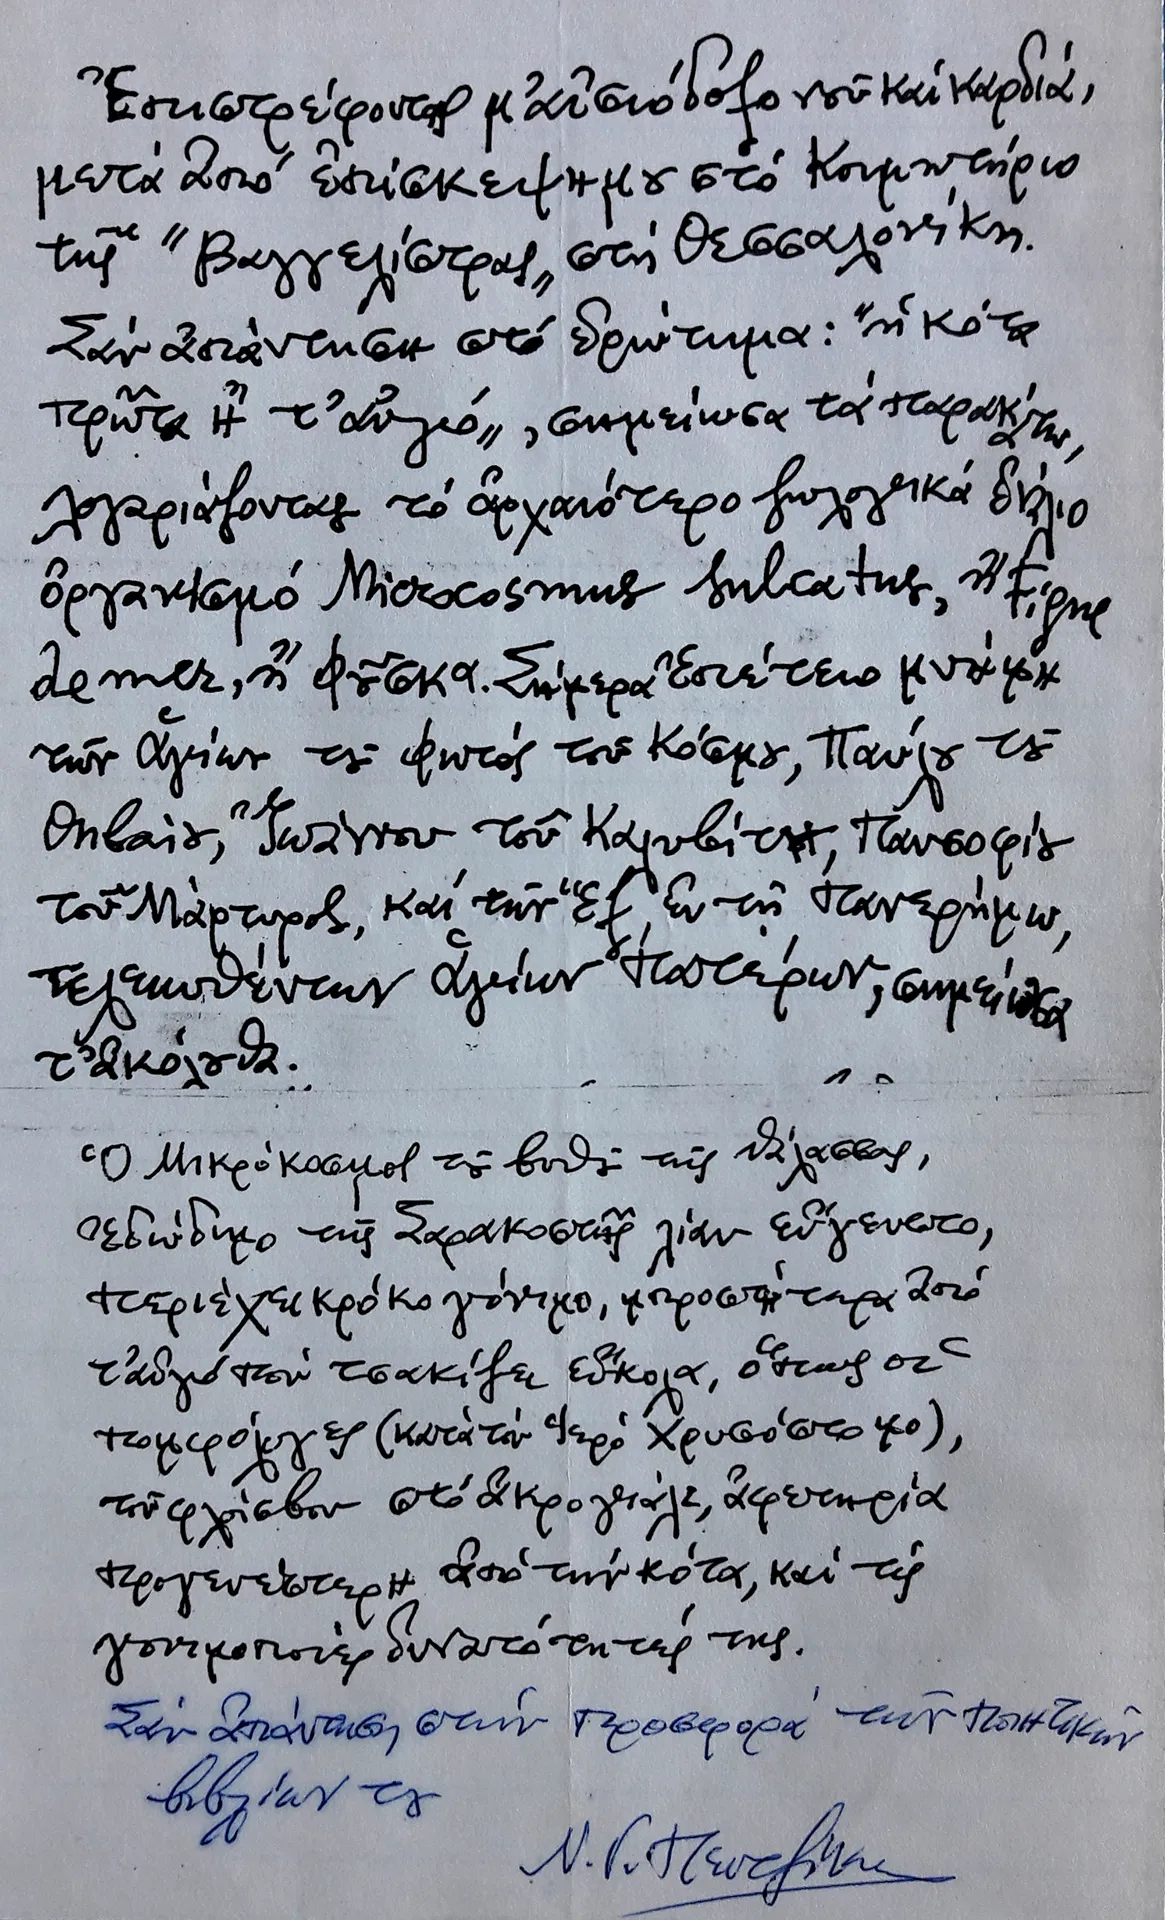 Ἐπιστρέφοντας μ' αἰσιόδοξο νοῦ καί καρδιά,
μετά ἀπό ἐπίσκεψή μου στό Κοιμητήριο
τῆς "Βαγγελίστρας" στή Θεσσαλονίκη.
Σάν ἀπάντηση στό ἐρώτημα: "ἡ κότα
πρῶτα ἤ τ' αὐγό", σημείωσα τά παρακάτω,
λογαριάζοντας τό ἀρχαιότερο ζωολογικά δίφυλο
ὀργανισμό Microcosmus sulcatus, ἤ Figue
de mer, ἤ φοῦσκα. Σήμερα Ἐπέτειο μνήμη
τῶν ἁγίων τοῦ φωτός τοῦ κόσμου, Παύλου τοῦ
Θηβαίου, Ἰωάννου τοῦ Καλυβίτη, Πανσοφίου
τοῦ Μάρτυρος, καί τῶν Ἕξ, ἐν τῇ πανερήμῳ,
τελειωθέντων ἁγίων Πατέρων, σημείωσα
τ' ἀκόλουθα.
Ὁ Μικρόκοσμος τοῦ βυθοῦ τῆς θάλασσας,
ἐδώδιμο τῆς Σαρακοστῆς λίαν εὔγευστο,
περιέχει κρόκο γόνιμο, μπροστήτερα ἀπό
τ' αὐγό πού τσακίζει εὔκολα, ὅπως οἱ
πομφόλυγες (κατά τόν ἱερό Χρυσόστομο),
τοῦ φλοίσβου στό ἀκρογιάλι, ἀφετηρία
προγενέστερη ἀπό τήν κότα, καί τίς
γονιμοποιές δυνατότητές της.
Σάν ἀπάντηση στήν προσφορά τῶν ποιητικῶν
βιβλίων του
Ν. Γ. Πεντζίκης